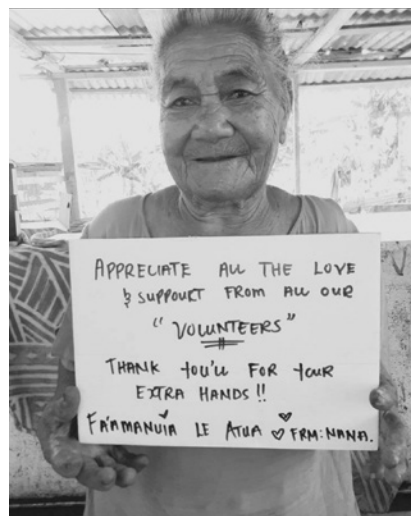 APPRECIATE ALL THE LOVE
& SUPPOURT FROM ALL OUR
"VOLUNTEERS"
THANK YOU'LL FOR YOUR
EXTRA HANDS!!
FA'AMANUIA LE ATUA ♡ FRM: NANA.